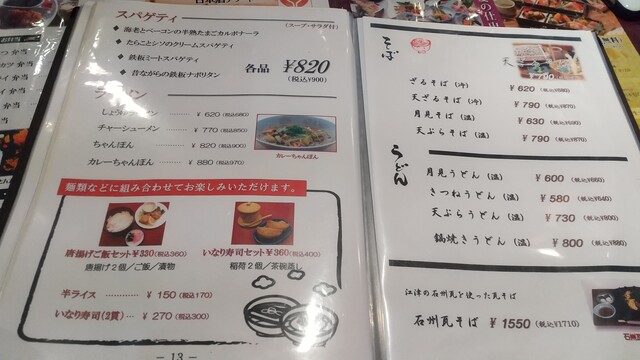 スパゲティ
(スープ・サラダ付)
◆ 海老とベーコンの半熟たまごカルボナーラ
◆ たらことシソのクリームスパゲティ
◆ 鉄板ミートスパゲティ
◆ 昔ながらの鉄板ナポリタン
各品 ¥820
(税込¥900)
チャーシューメン ‥‥‥ ¥ 770 (税込850)
ちゃんぽん ‥‥‥ ¥ 820 (税込900)
カレーちゃんぽん ‥‥‥ ¥ 880 (税込970)
カレーちゃんぽん
麺類などに組み合わせてお楽しみいただけます。
唐揚げご飯セット¥330(税込360)
唐揚げ2個/ご飯/漬物
いなり寿司セット¥360(税込400)
稲荷2個/茶碗蒸し
半ライス ‥‥‥‥ ¥ 150 (税込170)
いなり寿司(2貫)‥‥ ¥ 270 (税込300)
― 13 ―
そば
ざるそば (冷) ¥ 620 (税込¥680)
天ざるそば (冷) ¥ 790 (税込¥870)
月見そば (温) ¥ 630
天ぷらそば (温) ¥ 790 (税込¥870)
うどん
月見うどん (温) ¥ 600 (税込¥660)
きつねうどん (温) ¥ 580 (税込¥640)
天ぷらうどん (温) ¥ 730 (税込¥800)
鍋焼きうどん (温) ¥ 800 (税込¥880)
江津の石州瓦を使った瓦そば
石州瓦そば ¥ 1550 (税込¥1710)